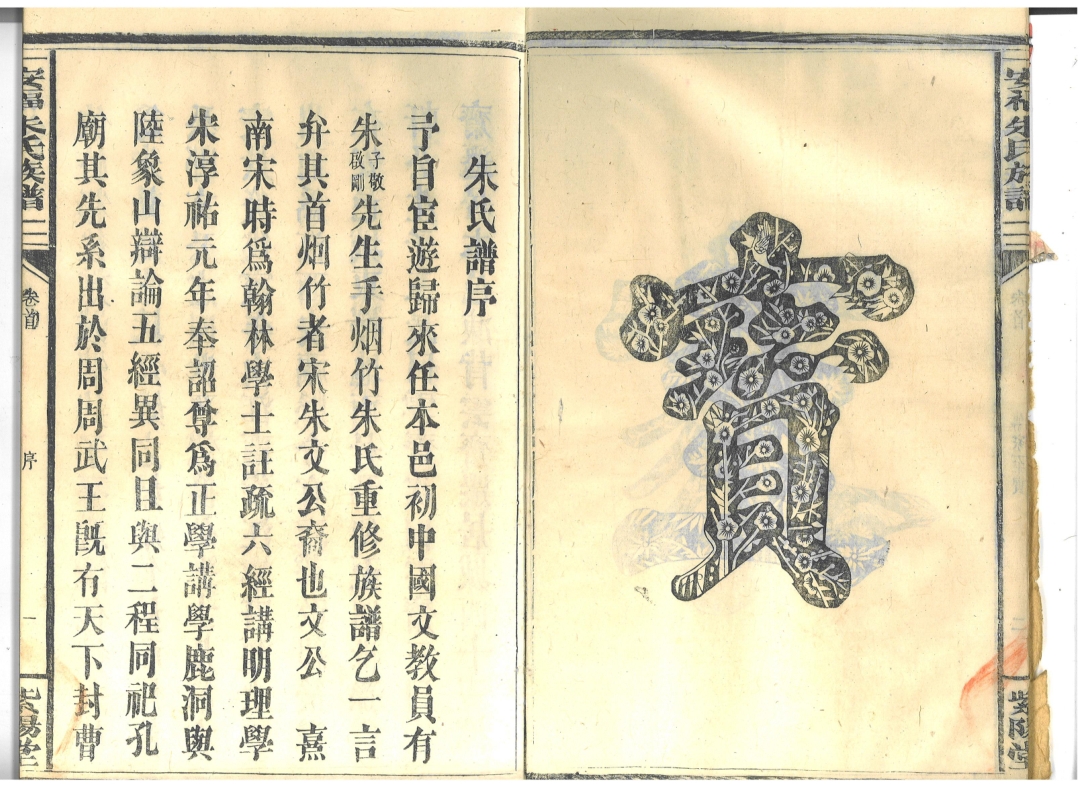 安福朱氏族譜
紫陽堂
朱氏譜序
予自宦遊歸來任本邑初中國文教員有
朱子敬啟剛先生手烟竹朱氏重修族譜乞一言
弁其首烟竹者宋朱文公裔也文公 熹
南宋時爲翰林學士註疏六經講明理學
宋淳祐元年奉詔尊爲正學講學鹿洞與
陸象山辯論五經異同且與二程同祀孔
廟其先系出於周周武王旣有天下封曹
安福朱氏族譜
卷首
序
一
紫陽堂